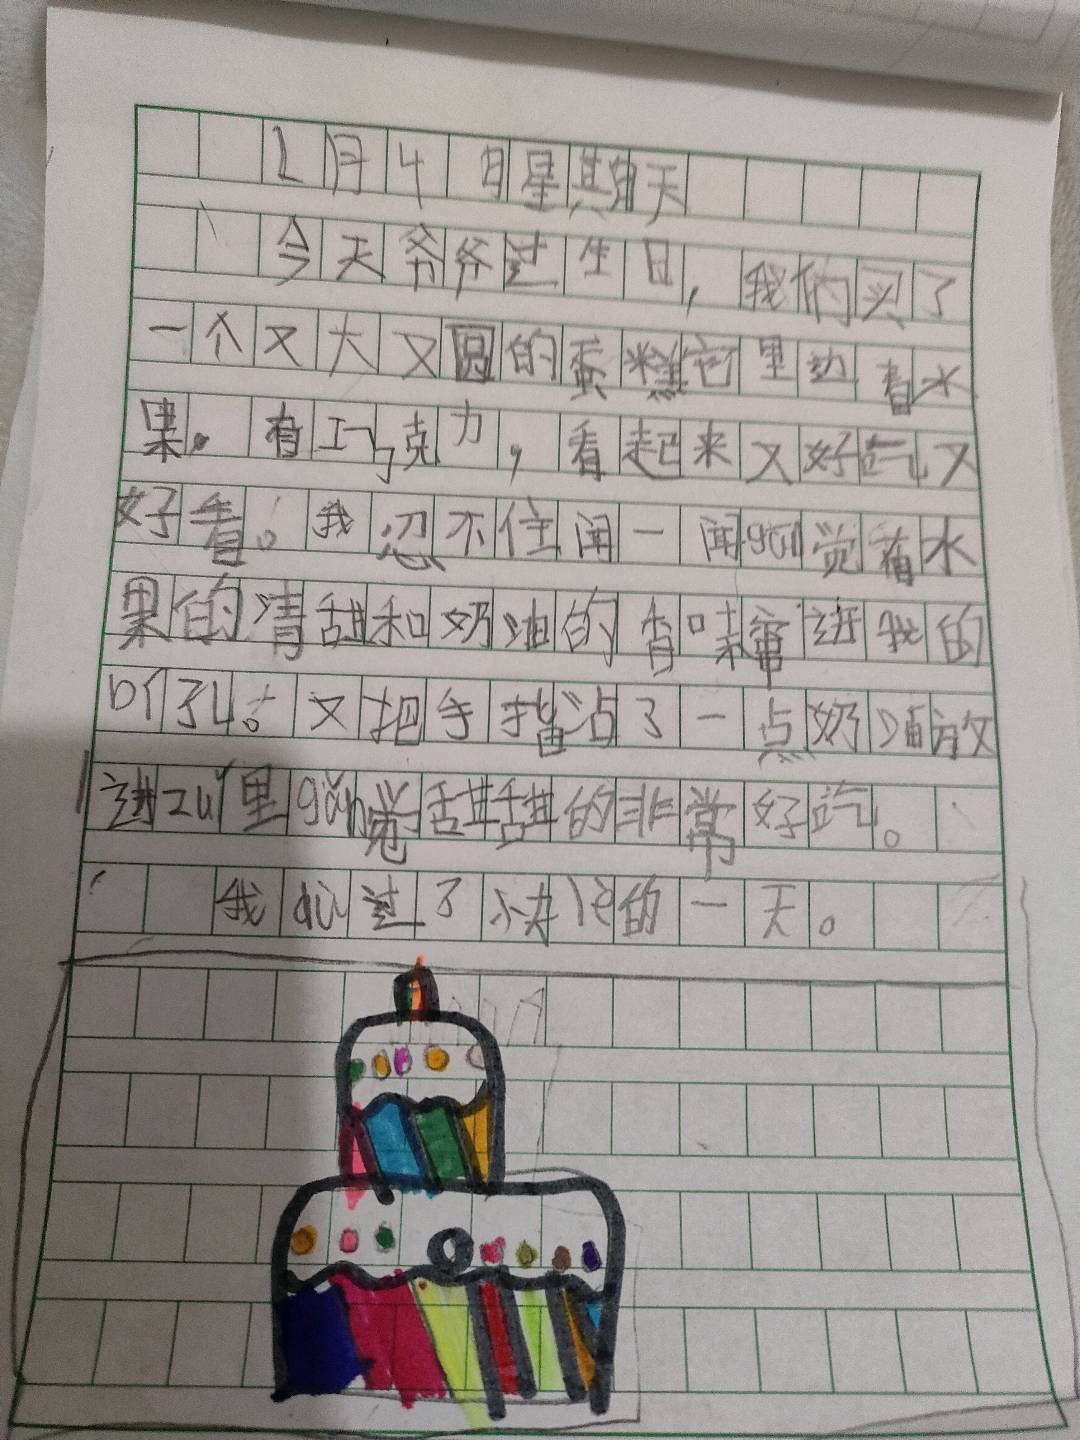 1月4日星期天
今天爷爷过生日，我们买了
一个又大又圆的蛋糕它里边有水
果。有巧克力，看起来又好吃又
好看。我忍不住闻一闻gǎn觉有水
果的清甜和奶油的香味窜进我的
口子儿。又把手指沾了一点奶油放
进zuǐ里gǎn觉甜甜的非常好吃。
我dù过了快lè的一天。